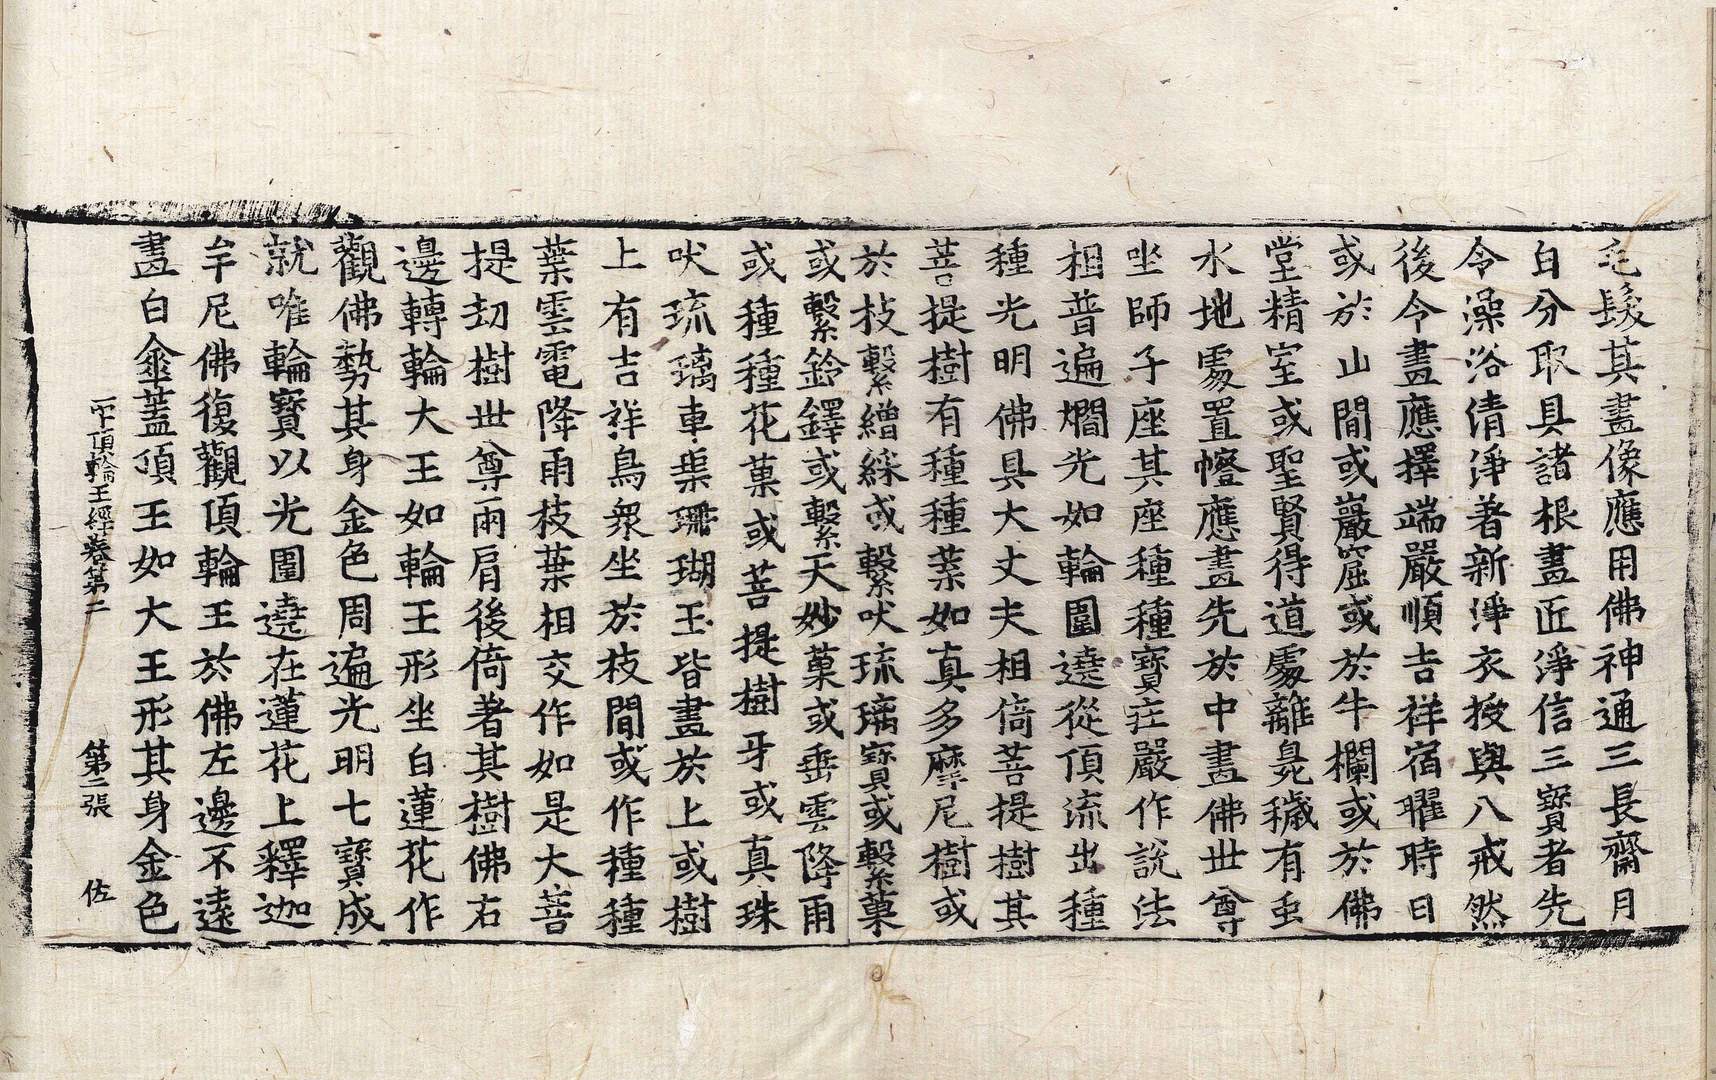 毛髮其畫像應用佛神通三長齋月
白分取具諸根畫匠淨信三寶者先
令澡浴清淨著新淨衣授與八戒然
後令畫應擇端嚴順吉祥宿曜時日
或於山間或巖窟或於牛欄或於佛
堂精室或聖賢得道處離臭穢有虫
水地處置㡧應畫先於中畫佛世尊
坐師子座其座種種寶莊嚴作說法
相普遍爓光如輪圍遶從頂流出種
種光明佛具大丈夫相倚菩提樹其
菩提樹有種種葉如真多摩尼樹或
於枝繫繒綵或繫吠琉璃寶或繫菓
或繫鈴鐸或繫天妙菓或垂雲降雨
或種種花菓或菩提樹牙或真珠
吠琉璃車渠珊瑚玉皆畫於上或樹
上有吉祥鳥衆坐於枝間或作種種
葉雲電降雨枝葉相交作如是大菩
提刧樹世尊兩肩後倚著其樹佛右
邊轉輪大王如輪王形坐白蓮花作
觀佛勢其身金色周遍光明七寶成
就唯輪寶以光圍遶在蓮花上釋迦
牟尼佛復觀頂輪王於佛左邊不遠
畫白傘蓋頂王如大王形其身金色
一字頂輪王經卷第二　第三張　佐